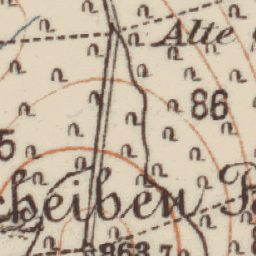 Alte
86
5
cheiben
863.7